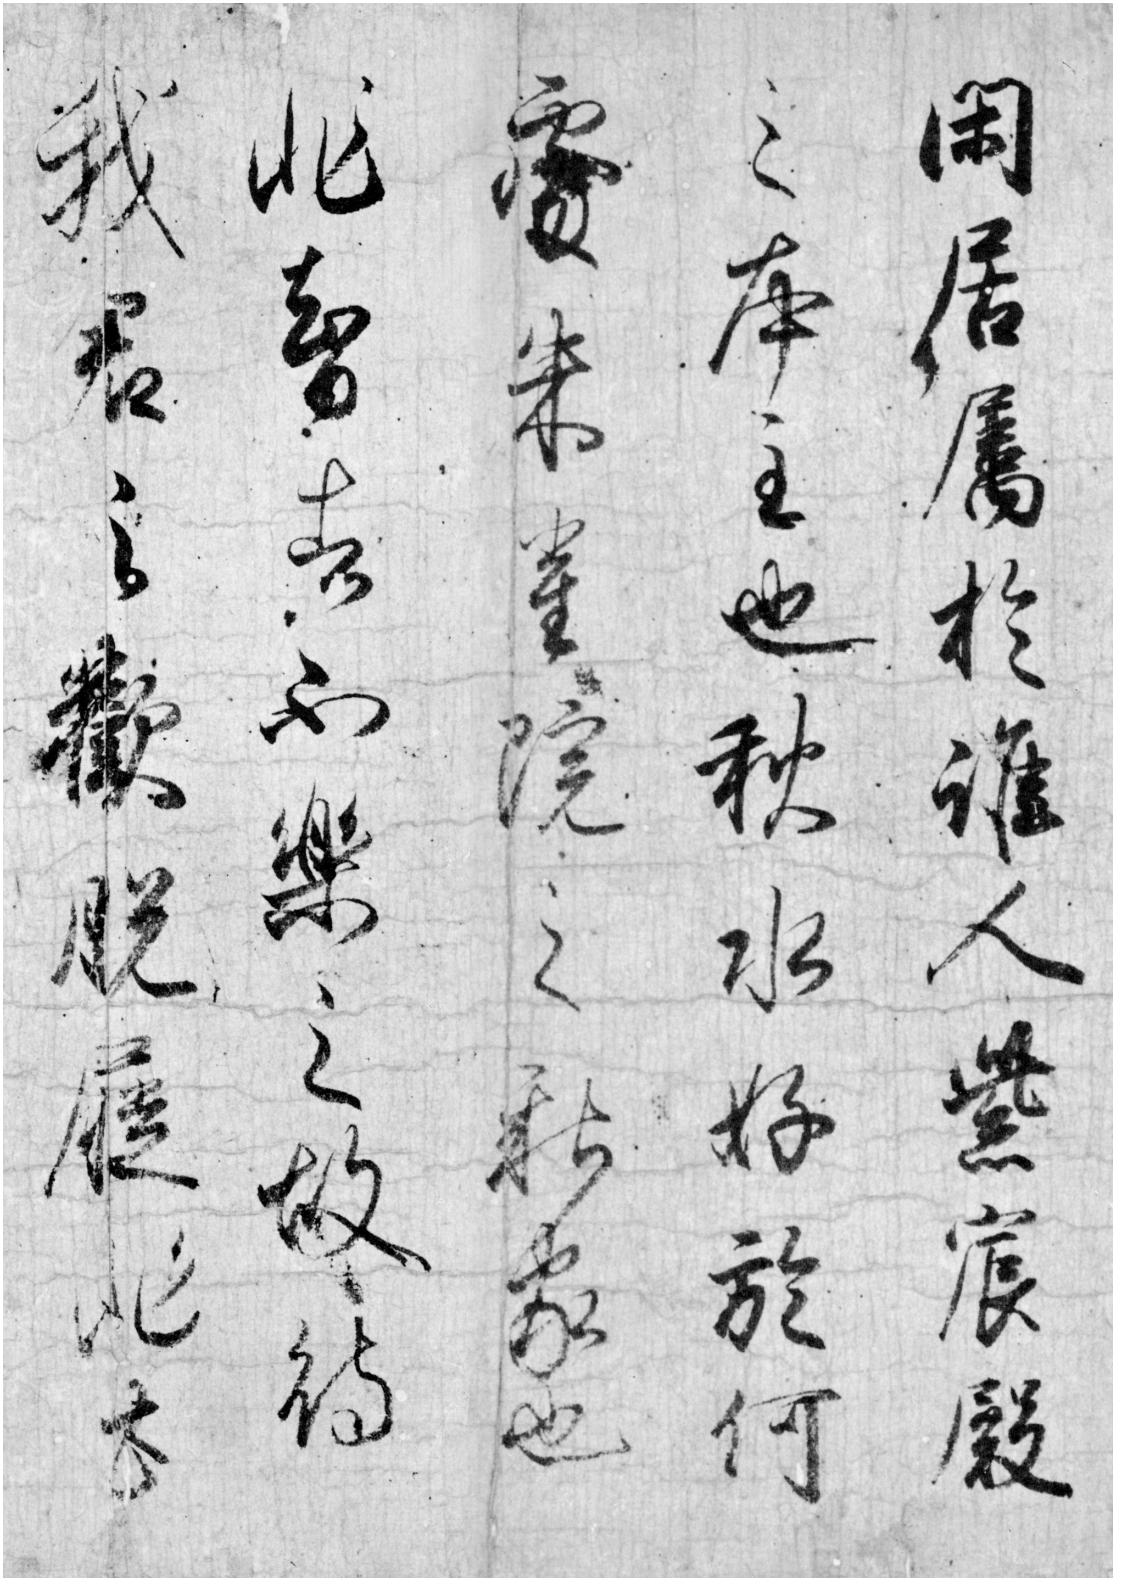 閑居属於誰人紫宸殿
之本主也秋水好於何
處朱雀院之新家也
非智者不樂之故待
我君之歡脱屣非玄